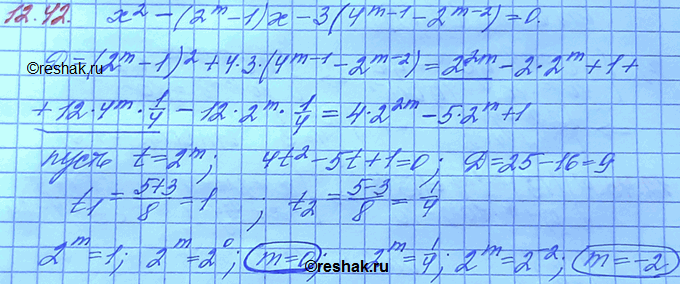 12.42. x² - (2^m - 1)x - 3(4^(m-1) - 2^(m-2)) = 0.
D = (2^m - 1)² + 4·3·(4^(m-1) - 2^(m-2)) = 2^(2m) - 2·2^m + 1 +
©reshak.ru
+ 12·4^m·1/4 - 12·2^m·1/4 = 4·2^(2m) - 5·2^m + 1
пусть t = 2^m; 4t² - 5t + 1 = 0; D = 25 - 16 = 9
t₁ = (5+3)/8 = 1; t₂ = (5-3)/8 = 1/4
2^m = 1; 2^m = 2^0; m = 0; 2^m = 1/4; 2^m = 2^(-2); m = -2
©reshak.ru